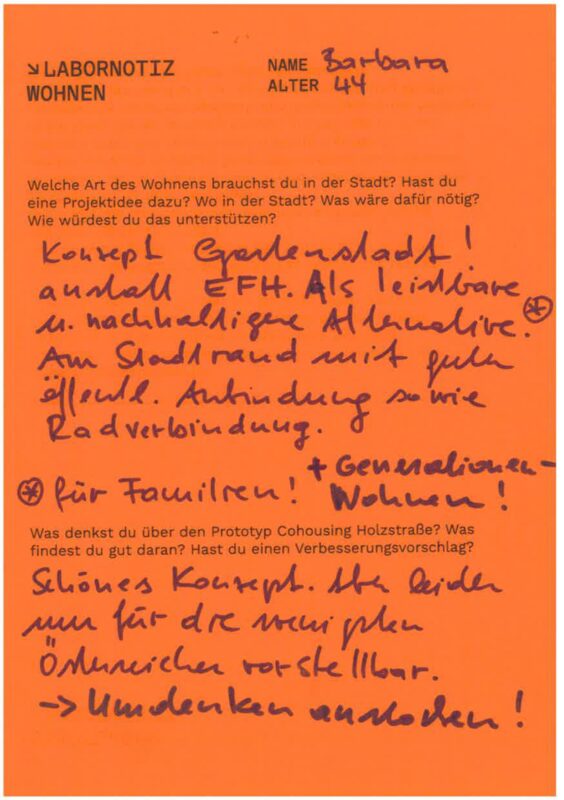 ↘ LABORNOTIZ
WOHNEN
NAME Barbara
ALTER 44
Welche Art des Wohnens brauchst du in der Stadt? Hast du
eine Projektidee dazu? Wo in der Stadt? Was wäre dafür nötig?
Wie würdest du das unterstützen?
Konzept Gartenstadt!
anstatt EFH. Als leistbare
u. nachhaltigere Alternative. *
Am Stadtrand mit guten
öffentl. Anbindung sowie
Radverbindung.
+ Generationen-
* für Familien! Wohnen!
Was denkst du über den Prototyp Cohousing Holzstraße? Was
findest du gut daran? Hast du einen Verbesserungsvorschlag?
Schönes Konzept. Aber leider
nur für die wenigsten
Österreicher vorstellbar.
-> Umdenken anstoßen!